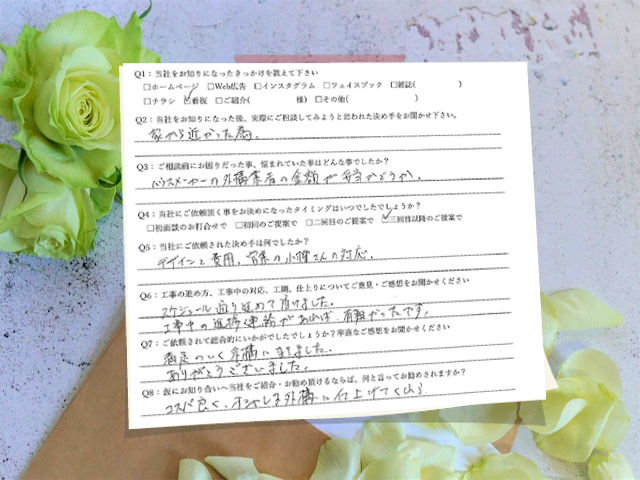 Q1：当社をお知りになったきっかけを教えて下さい
□ホームページ □Web広告 □インスタグラム □フェイスブック □雑誌( )
□チラシ ☑看板 □ご紹介( 様) □その他( )
Q2：当社をお知りになった後、実際にご相談してみようと思われた決め手をお聞かせ下さい。
家から近かった為。
Q3：ご相談前にお困りだった事、悩まれていた事はどんな事でしたか？
ハウスメーカーの外構業者の金額が妥当かどうか。
Q4：当社にご依頼頂く事をお決めになったタイミングはいつでしたでしょうか？
□初面談のお打合せで □初回のご提案で □二回目のご提案で ☑三回目以降のご提案で
Q5：当社にご依頼された決め手は何でしたか？
デザインと費用。営業の小幡さんの対応。
Q6：工事の進め方、工事中の対応、工期、仕上りについてご意見・ご感想をお聞かせください
スケジュール通り進めて頂けました。
工事中の進捗連絡があれば、有難かったです。
Q7：ご依頼されて総合的にいかがでしたでしょうか？率直なご感想をお聞かせください
満足のいく外構になりました。
ありがとうございました。
Q8：仮にお知り合いへ当社をご紹介・お勧め頂けるならば、何と言ってお勧めされますか？
コスパ良く、オシャレな外構に仕上げてくれる